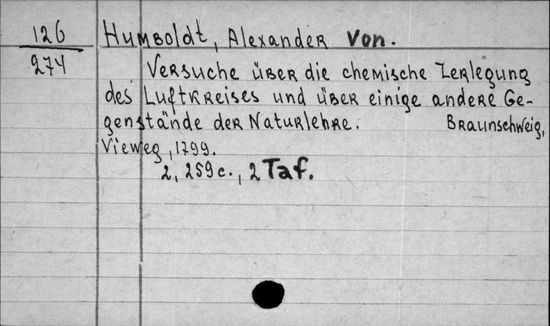 126
274
Humboldt, Alexander von.
Versuche über die chemische Zerlegung
des Luftkreises und über einige andere Ge-
genstände der Naturlehre. Braunschweig,
Vieweg, 1799.
2, 259 c., 2 Taf.